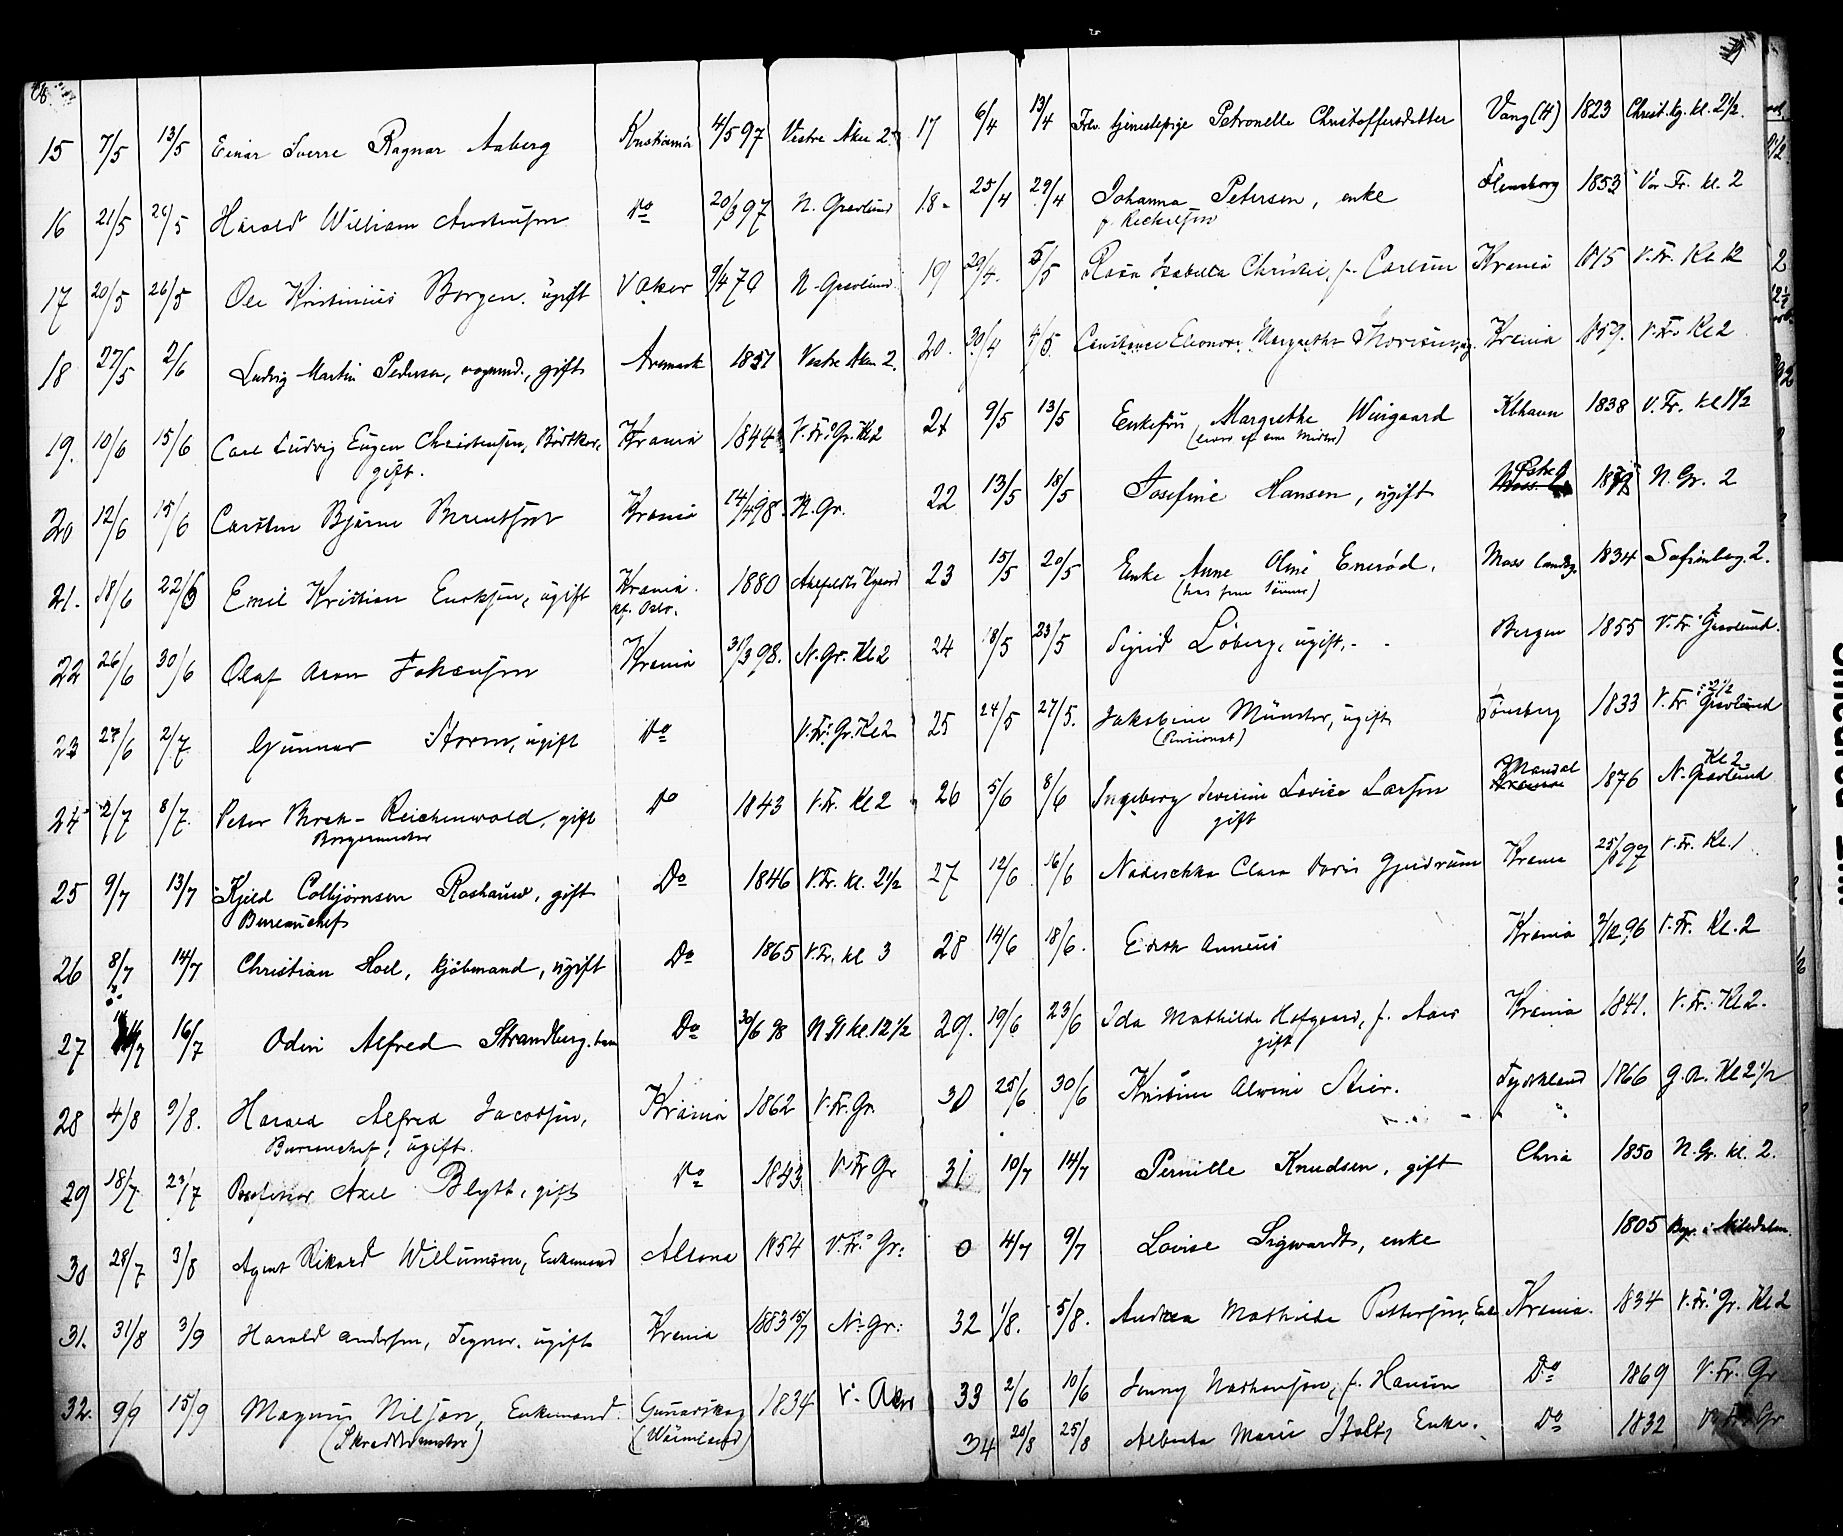 15 7/5 13/5 Einar Sverre Ragnar Aaberg Kristiania 4/5 97 Vestre Aker 2
16 21/5 26/5 Harald William do 20/3 97 N. Gravlund
17 20/5 26/5 Ole Kristinius Borgen. ugift V Aker 9/4 70 N. Gravlund
18 27/5 2/6 Ludvig Martin Pedersen, gift Aremark 1851 Vestre Aker 2.
19. 10/6 15/6 Carl Ludvig Eugen Christensen, Krania 1844 V. Fr. Gr. Kl 2
gift.
20 12/6 15/6 Carsten Bjarne Berentsen Krania 14/4 98. N. Gr.
21. 18/6 22/6 Emil Kristian Eriksen, ugift Krania. 1880
22 26/6 30/6 Olaf Aron Johansen Krania 31/3 98. N. Gr. Kl 2
23 27/6 2/7 Gunnar Storm, ugift do V. Fr. Gr. Kl 2
24 2/7 8/7 Peter Reichenwald, gift do 1843 V. Fr. Kl 2
Borgermester
25 9/7 13/7 Kjeld Colbjörnsen gift Do 1846 V. Fr. kl. 2 1/2
Bureauchef
26 8/7 14/7 Christian Hoel, kjöbmand, ugift Do 1865 V. Fr. kl 3
27 16/7 Odin Alfred Strandberg. Do 30/6 98 N Gr kl. 12 1/2
28 4/8 9/8. Harald Alfred Jacobsen, Krania 1862 V. Fr. Gr.
Bureauchef, ugift.
29 18/7 23/7 Professor Axel Blytt, gift do 1843 V. Fr Gr
30 28/7 3/8 Agent Rikard Willumsen, Enkemand Altona 1854 V. Fr. Gr:
31. 31/8 3/9 Harald Andersen, Tegner. ugift Krania 1883 N. Gr:
32. 9/9 15/9 Magnus Nilson, Enkemand. Gunnarskog 1834 V. Aker
(Skræddermester) (Wärmland)
17 6/4 13/4 tjenestepige Petronelle Christoffersdatter Vang (H) 1823 Christ. kg. kl. 2 1/2.
18 25/4 29/4 Johanna Petersen, enke Flensborg 1853 Vor Fr. kl. 2
19 29/4. 5/5 Rosa Isabella Christie, f. Carlsen Krania 1815 V. Fr. Kl. 12
20. 30/4 4/5. Constance Eleonore Margrethe Krania 1859. V. Fr. Kl 2
21 9/5 13/5 Enkefru Margrethe Wiisgaard Kbhavn 1838 V. Fr. kl 1 1/2
22 13/5 18/5 Josefine Hansen, ugift N. Gr. 2
23 15/5 20/5 Enke Anne Oline Enerød. Moss landsg. 1834 Sofienberg. 2.
(har fem sönner)
24 18/5 23/5 Sigrid Löberg, ugift. Bergen 1855 V. Fr. Gravlund.
25 24/5 27/5. Jakobine Münster, ugift Tönsberg 1833 V. Fr Gravlund 2 1/2
(Pensionat)
26 5/6 8/6 Ingeborg Severine Lovise Larsen Mandal 1876 N. Gravlund Kl 2
gift
27 12/6 16/6 Nadeschka Clara Doris Gjerdrum Krania V. Fr. Kl. 1
28 14/6 18/6. Edith Annæus Krania 2/12 96 V. Fr. Kl. 2
29. 19/6 23/6 Ida Mathilde Hofgaard, f. Aars Krania 1841. V. Fr. Kl 2.
gift
30 25/6 30/6 Kristine Alvine Stier. Tyskland 1866 G. A. Kl 2 1/2
31 10/7 14/7 Pernille Knudsen, gift Chria 1850 N. Gr. kl. 2.
0 4/7 9/7 Lovise Sigwardt, enke 1805 Begr. i Nitedalen
32 1/8. 5/8. Andrea Mathilde Pettersen, Enke Krania. 1834 V. Fr. Gr. Kl 2
33 2/6 10/6 Jenny Mathausen, f. Hansen Do 1869 V. Fr. Gr
34 20/8 25/8 Alberta Marie Stoltz Enke. Do 1832 V. Fr. Gr